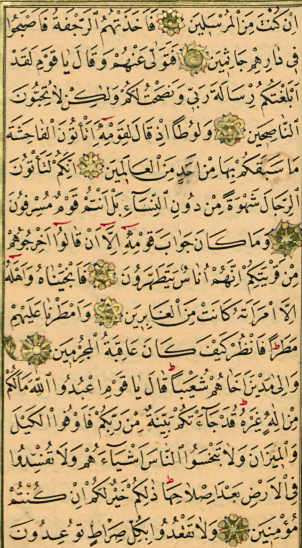 ان كنت من المرسلين فاخذتهم الرجفة فاصبحوا
فى دارهم جاثمين فتولى عنهم وقال يا قوم لقد
ابلغتكم رسالة ربى ونصحت لكم ولكن لا تحبون
الناصحين ولوطا اذ قال لقومه اتاتون الفاحشة
ما سبقكم بها من احد من العالمين انكم لتاتون
الرجال شهوة من دون النساء بل انتم قوم مسرفون
وما كان جواب قومه الا ان قالوا اخرجوهم
من قريتكم انهم اناس يتطهرون فانجيناه واهله
الا امراته كانت من الغابرين وامطرنا عليهم
مطرا فانظر كيف كان عاقبة المجرمين
والى مدين اخاهم شعيبا قال يا قوم اعبدوا الله مالكم
من اله غيره قد جاءتكم بينة من ربكم فاوفوا الكيل
والميزان ولا تبخسوا الناس اشياءهم ولا تفسدوا
فى الارض بعد اصلاحها ذلكم خير لكم ان كنتم
مؤمنين ولا تقعدوا بكل صراط توعدون